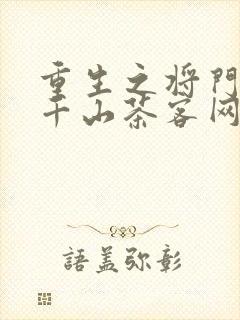 重生之将门
千山茶客网
語盖弥彰